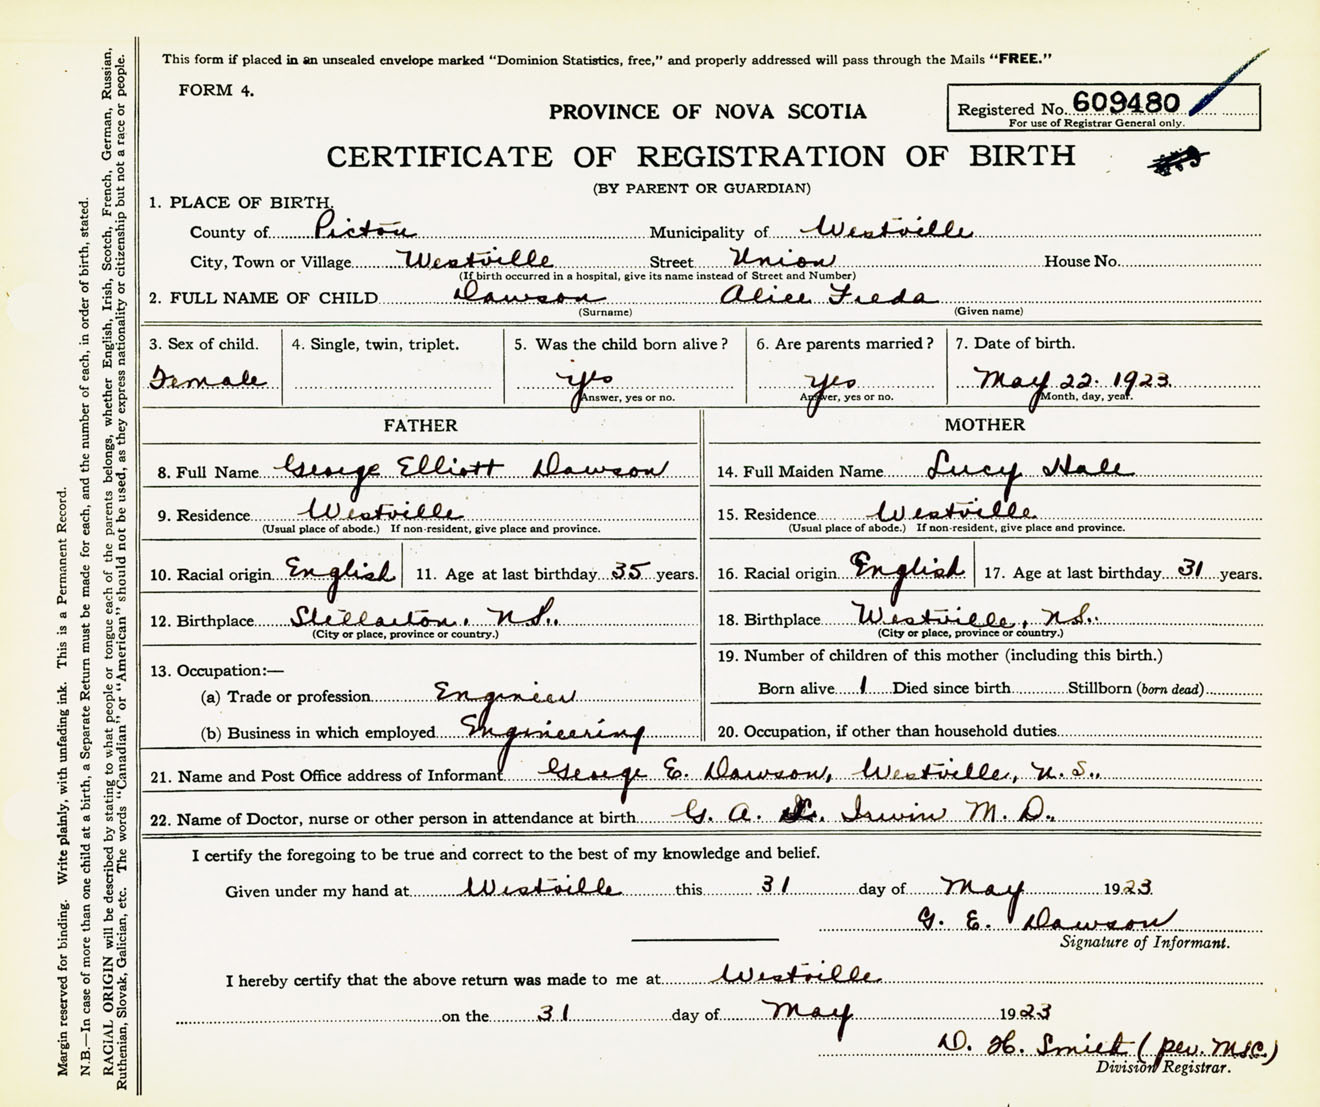 This form if placed in an unsealed envelope marked "Dominion Statistics, free," and properly addressed will pass through the Mails "FREE."
FORM 4.
PROVINCE OF NOVA SCOTIA
Registered No. 609480
For use of Registrar General only.
CERTIFICATE OF REGISTRATION OF BIRTH
(BY PARENT OR GUARDIAN)
1. PLACE OF BIRTH.
County of Pictou Municipality of Westville
City, Town or Village Westville Street Union House No.
(If birth occurred in a hospital, give its name instead of Street and Number)
2. FULL NAME OF CHILD Dawson Alice Freda
(Surname) (Given name)
3. Sex of child. 4. Single, twin, triplet. 5. Was the child born alive? 6. Are parents married? 7. Date of birth.
Female yes yes May 22. 1923
Answer, yes or no. Answer, yes or no. Month, day, year.
FATHER MOTHER
8. Full Name George Elliott Dawson 14. Full Maiden Name Lucy Hale
9. Residence Westville 15. Residence Westville
(Usual place of abode.) If non-resident, give place and province. (Usual place of abode.) If non-resident, give place and province.
10. Racial origin English 11. Age at last birthday 35 years. 16. Racial origin English 17. Age at last birthday 31 years.
12. Birthplace Stellarton, N.S. 18. Birthplace Westville, N.S.
(City or place, province or country.) (City or place, province or country.)
13. Occupation:— 19. Number of children of this mother (including this birth.)
(a) Trade or profession Engineer Born alive 1 Died since birth Stillborn (born dead)
(b) Business in which employed Engineering 20. Occupation, if other than household duties
21. Name and Post Office address of Informant George E. Dawson, Westville, N.S.
22. Name of Doctor, nurse or other person in attendance at birth G. A. Irwin M. D.
I certify the foregoing to be true and correct to the best of my knowledge and belief.
Given under my hand at Westville this 31 day of May 1923
G. E. Dawson
Signature of Informant.
I hereby certify that the above return was made to me at Westville
on the 31 day of May 1923
D. H. Smith (per. MSC.)
Division Registrar.
Margin reserved for binding. Write plainly, with unfading ink. This is a Permanent Record.
N.B.—In case of more than one child at a birth, a Separate Return must be made for each, and the number of each, in order of birth, stated.
RACIAL ORIGIN will be described by stating to what people or tongue each of the parents belongs, whether English, Irish, Scotch, French, German, Russian,
Ruthenian, Slovak, Galician, etc. The words "Canadian" or "American" should not be used, as they express nationality or citizenship but not a race or people.